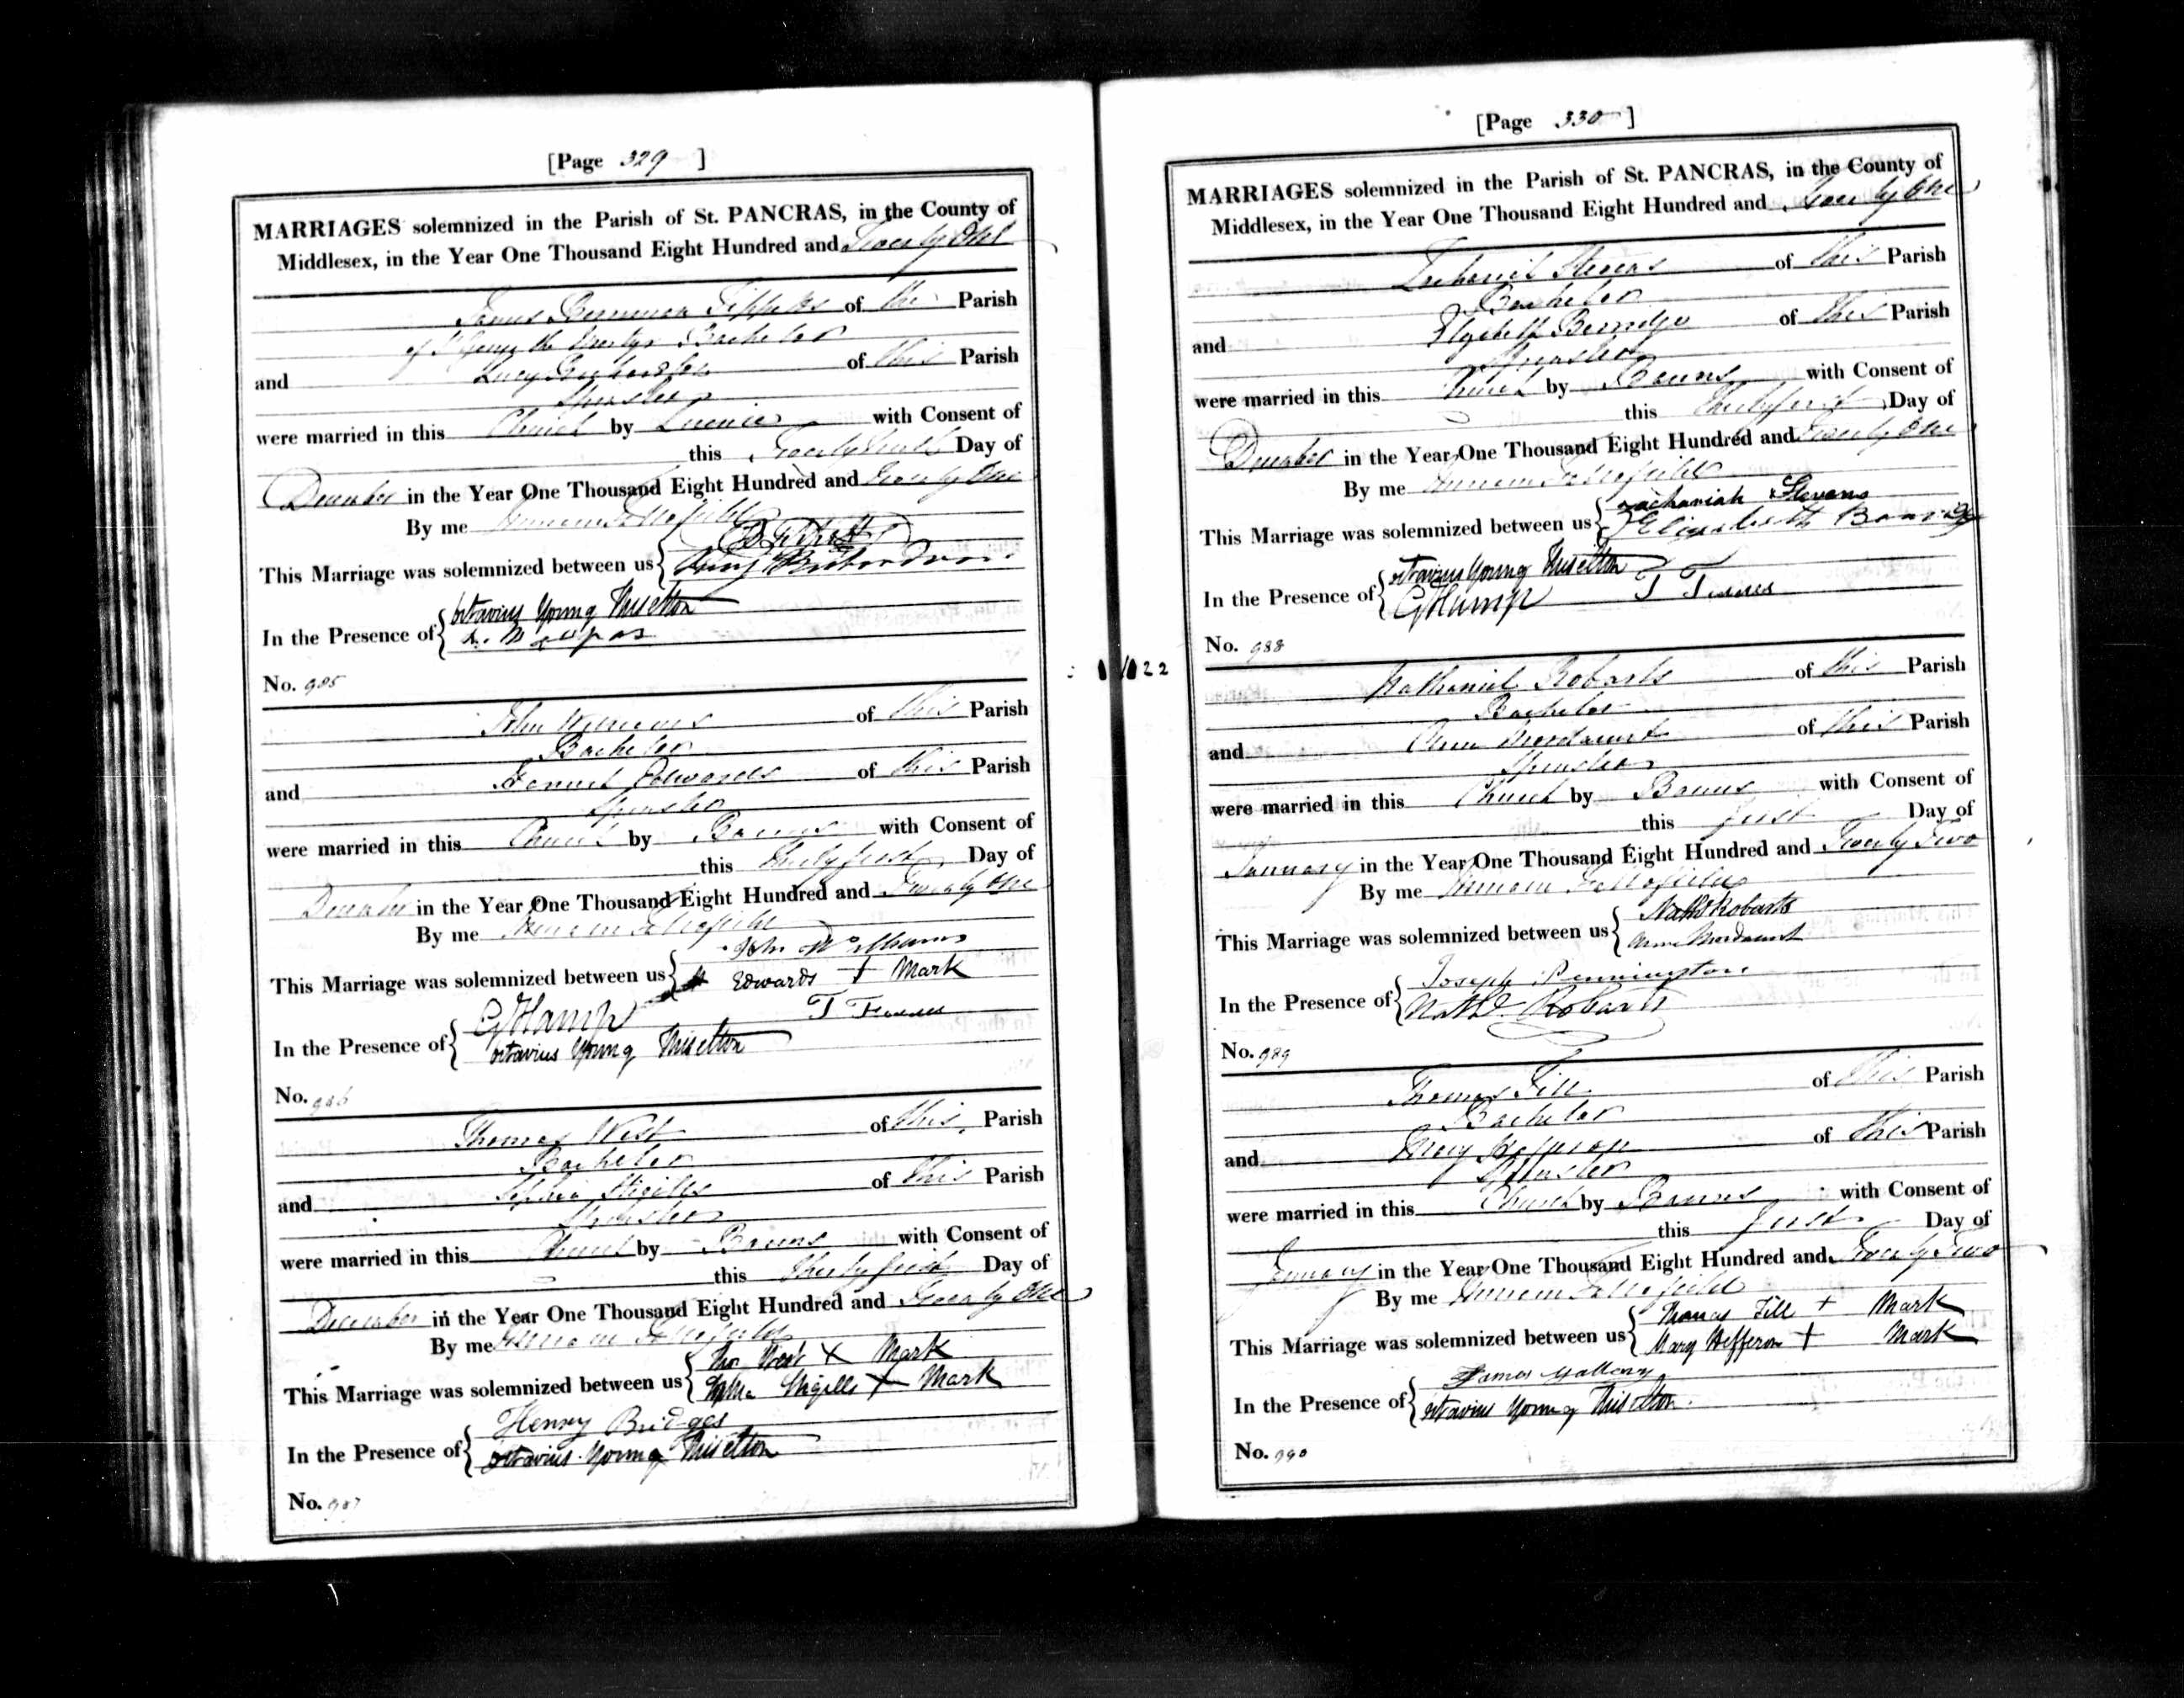 [Page 329 ]
MARRIAGES solemnized in the Parish of St. PANCRAS, in the County of
Middlesex, in the Year One Thousand Eight Hundred and Twenty One
James Tippetts of the Parish
of St George the Martyr Bachelor
and Lucy Richardson of this Parish
Spinster
were married in this Church by Licence with Consent of
this Day of
December in the Year One Thousand Eight Hundred and Twenty One
By me
This Marriage was solemnized between us
Lucy Richardson
In the Presence of Octavius Young Thiselton
No. 985
John Williams of this Parish
Bachelor
and Edwards of this Parish
Spinster
were married in this Church by Banns with Consent of
this Thirty first Day of
December in the Year One Thousand Eight Hundred and Twenty One
By me
This Marriage was solemnized between us John Williams
Edwards + Mark
In the Presence of
Octavius Young Thiselton
No. 986
Thomas West of this Parish
Bachelor
and Sophia of this Parish
Spinster
were married in this Church by Banns with Consent of
this Thirty first Day of
December in the Year One Thousand Eight Hundred and Twenty One
By me
This Marriage was solemnized between us Thos West X Mark
X Mark
In the Presence of Henry Bridges
Octavius Young Thiselton
No. 987
1822
[Page 330 ]
MARRIAGES solemnized in the Parish of St. PANCRAS, in the County of
Middlesex, in the Year One Thousand Eight Hundred and Twenty One
Stevens of this Parish
Bachelor
and of this Parish
Spinster
were married in this Church by Banns with Consent of
this Thirty first Day of
December in the Year One Thousand Eight Hundred and Twenty One
By me
This Marriage was solemnized between us Zachariah Stevens
Elizabeth
In the Presence of Octavius Young Thiselton
No. 988
Nathaniel Robarts of this Parish
Bachelor
and Ann Mordaunt of this Parish
Spinster
were married in this Church by Banns with Consent of
this first Day of
January in the Year One Thousand Eight Hundred and Twenty Two
By me
This Marriage was solemnized between us Nathl Robarts
Ann Mordaunt
In the Presence of Joseph Pennington
Nathl Robarts
No. 989
Thomas Till of this Parish
Bachelor
and Mary of this Parish
Spinster
were married in this Church by Banns with Consent of
this first Day of
January in the Year One Thousand Eight Hundred and Twenty Two
By me
This Marriage was solemnized between us Thomas Till + Mark
Mary Hefferon + Mark
In the Presence of James
Octavius Young Thiselton
No. 990